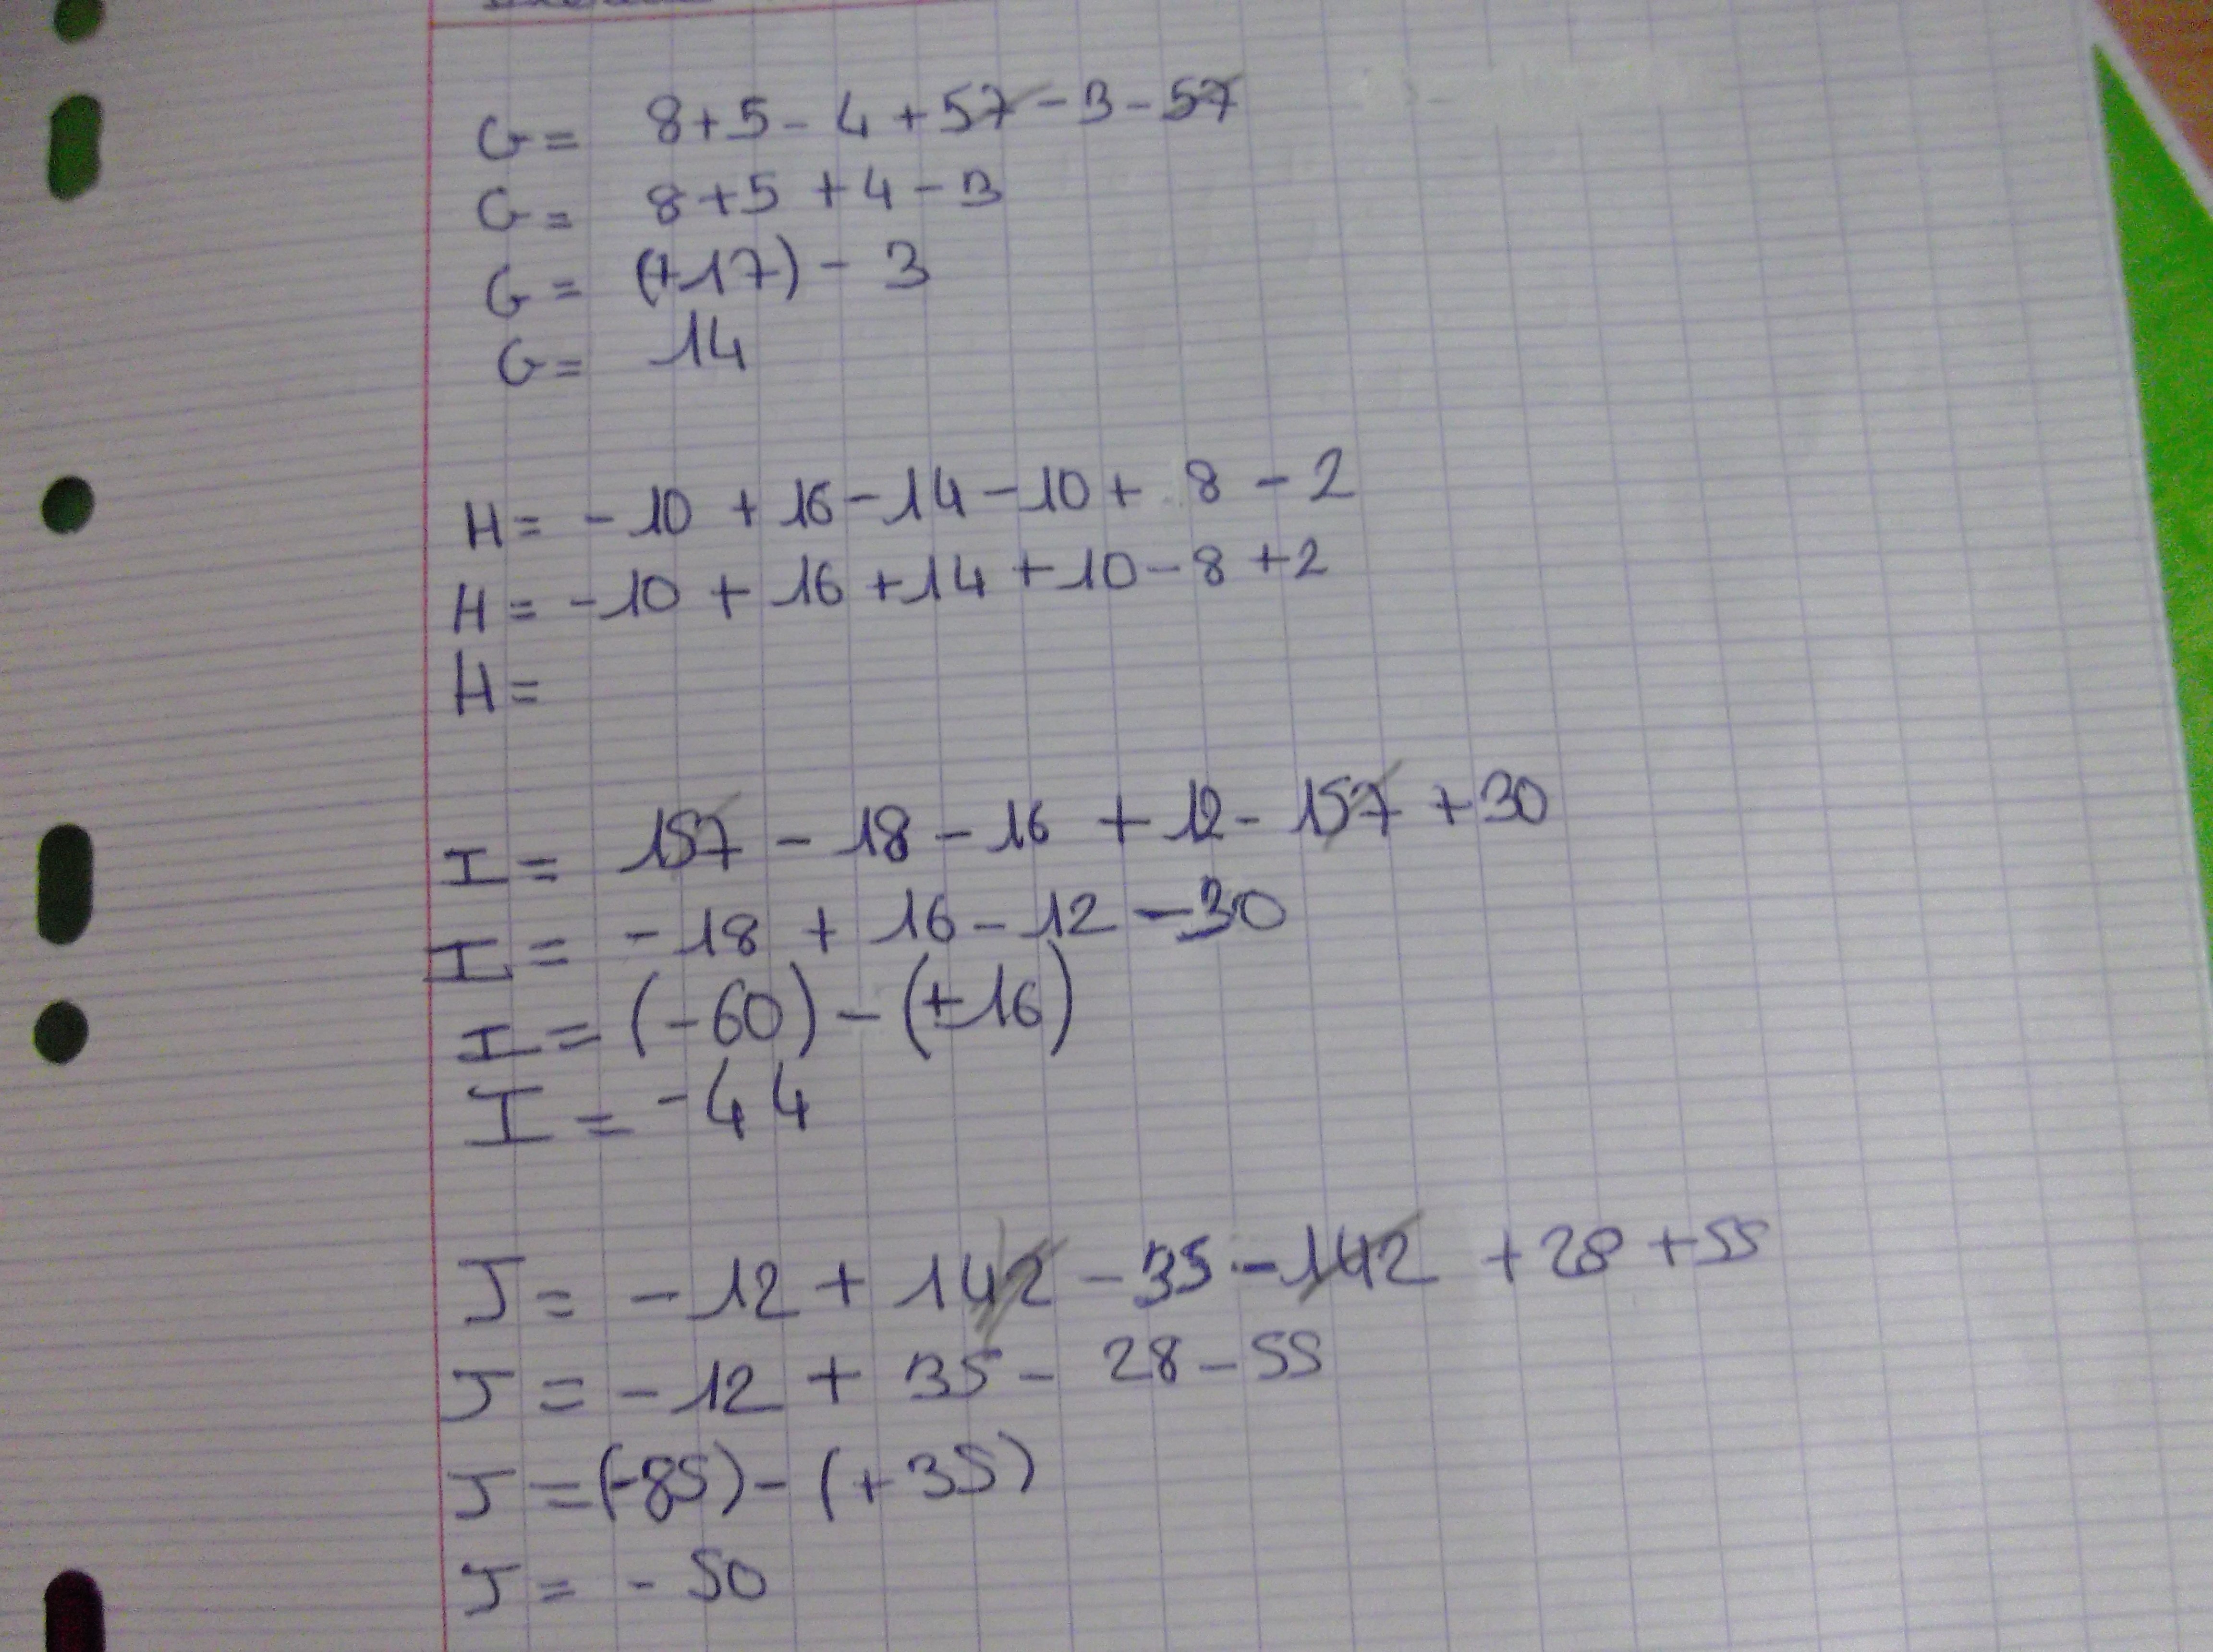 G = 8 + 5 - 4 + 57 - 3 - 57
G = 8 + 5 + 4 - 3
G = (+17) - 3
G = 14
H = - 10 + 16 - 14 - 10 + 8 - 2
H = - 10 + 16 + 14 + 10 - 8 + 2
H =
I = 157 - 18 - 16 + 12 - 157 + 30
I = - 18 + 16 - 12 - 30
I = (- 60) - (+16)
I = - 44
J = - 12 + 142 - 35 - 142 + 28 + 55
J = - 12 + 35 - 28 - 55
J = (-85) - (+35)
J = - 50